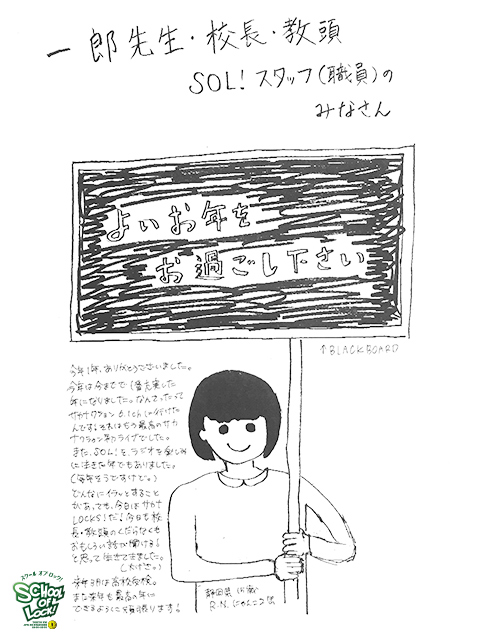 一郎先生・校長・教頭
SOL!スタッフ(職員)の
みなさん
よいお年を
お過ごし下さい
↑BLACKBOARD
今年1年、ありがとうございました。
今年は今までで1番充実した
年になりました。なんてったって
サカナクション 6.1ch に行けた
んです!それはもう最高のサカ
ナクション初ライブでした。
また、SOL!を、ラジオを楽しみ
に生きた年でもありました。
(毎年そうですけど。)
どんなにイラッとすること
があっても、今日はサカナ
LOCKS!だ!今日も校
長・教頭のくだらなくも
おもしろい話が聞ける!
と思って生きてきました。
来年3月は高校受検。
また来年も最高の年に
できるように頑張ります!
静岡県
R.N.にゃんこる
スクール オブ ロック!
SCHOOL
OF
LOCK!